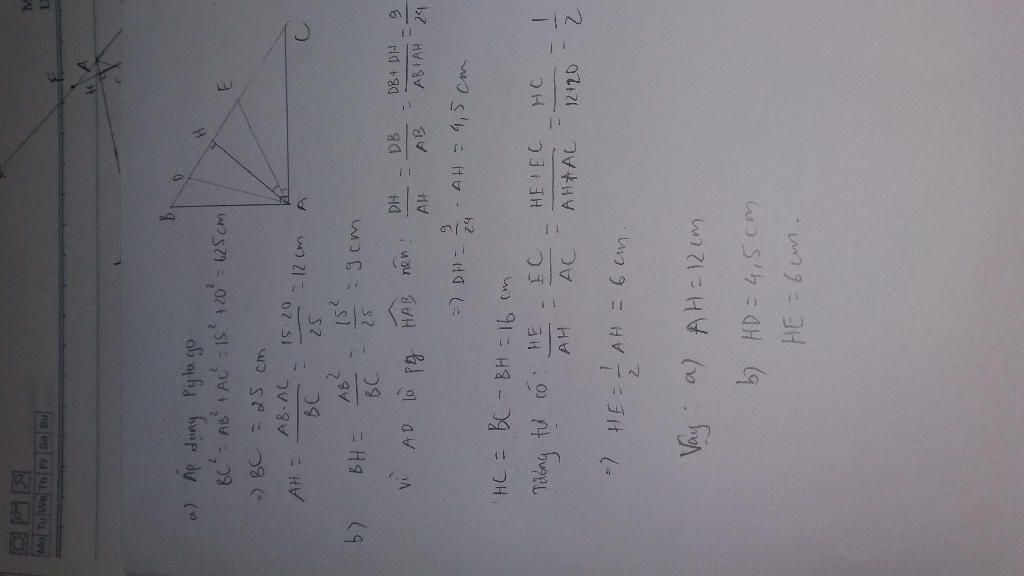 Mo Tu We Th Fr Sa Su
F
A
H
B
D
H
E
A
C
a) Áp dụng Pytago:
BC² = AB² + AC² = 15² + 20² = 625 cm
=) BC = 25 cm
AH = AB.AC / BC = 15.20 / 25 = 12 cm
b) BH = AB² / BC = 15² / 25 = 9 cm
Vì AD là pg HAB nên: DH / AH = DB / AB = DB + DH / AB + AH = 9 / 24
=) DH = 9 / 24 . AH = 4,5 cm
HC = BC - BH = 16 cm
Tương tự có: HE / AH = EC / AC = HE + EC / AH + AC = HC / 12+20 = 1 / 2
=) HE = 1 / 2 AH = 6 cm.
Vậy: a) AH = 12 cm
b) HD = 4,5 cm
HE = 6 cm.